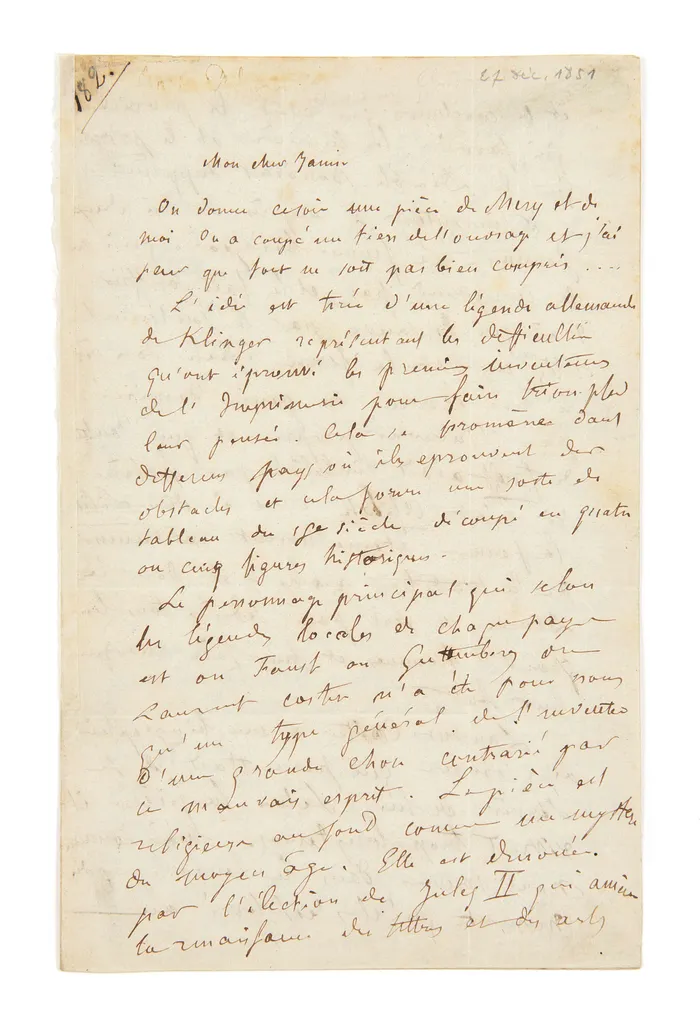 182.
27 déc, 1851
Mon cher Janin
On donne ce soir une pièce de Mery et de
moi On a coupé un tiers de l'ouvrage et j'ai
peur que tout ne soit pas bien compris ....
L'idée est tirée d'une légende allemande
de Klinger représentant les difficultés
qu'ont éprouvé les premiers inventeurs
de l'Imprimerie pour faire triompher
leur pensée. Cela se promène dans
différens pays où ils éprouvent des
obstacles et cela forme une sorte de
tableau du 15e siècle découpé en quatre
ou cinq figures historiques.
Le personnage principal qui selon
les légendes locales de
est ou Faust ou Guttemberg ou
Laurent Coster n'a été pour nous
qu'un type général de l'inventeur
d'une grande chose contrarié par
le mauvais esprit. La pièce est
religieuse au fond comme un mystère
du moyen âge. Elle est dénouée
par l'élection de Jules II qui amène
la renaissance des lettres et des arts